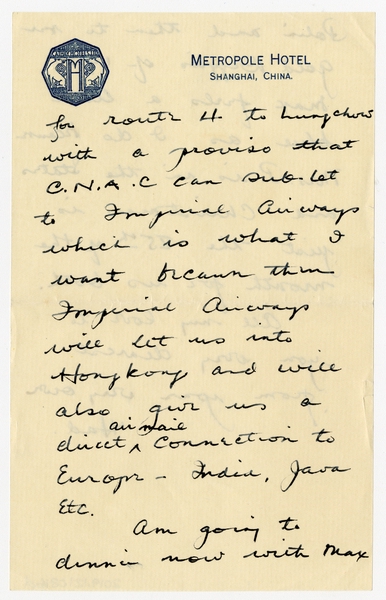 METROPOLE HOTEL
SHANGHAI, CHINA.
for route 4 to Lungchow
with a proviso that
C.N.A.C can sub-let
to Imperial Airways
which is what I
want because then
Imperial Airways
will let us into
Hongkong and will
also give us a
airmail
direct ^ connection to
Europe - India, Java
Etc.
Am going to
dinner now with Max